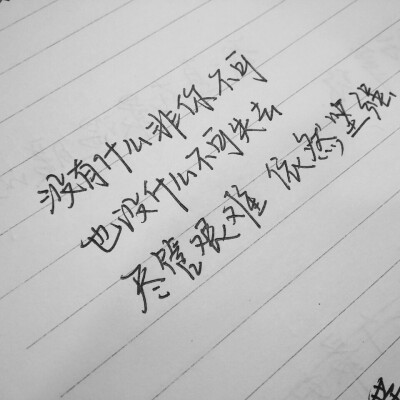 没有什么非你不可
也没什么不可失去
尽管艰难 依然坚强